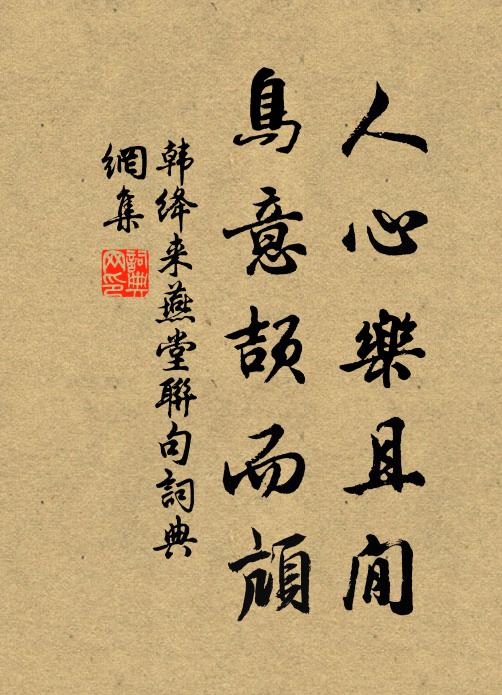 人心樂且閒
鳥意頡而頏
韩绛来燕堂聯句詞典
網集
詞典
网印